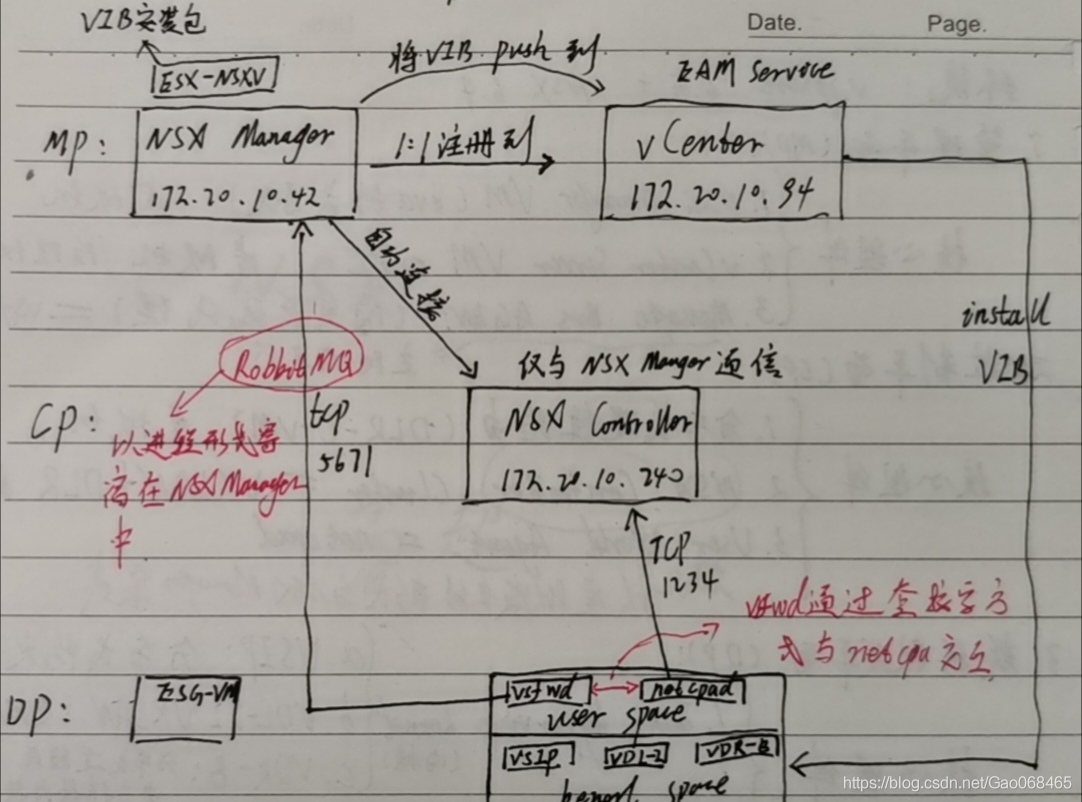 Date.
Page.
VIB安装包
ESX-NSXV
将VIB push 到
EAM Service
MP:
NSX Manager
172.20.10.42
1:1注册到
vCenter
172.20.10.94
自动连接
install
VIB
RobbitMQ
仅与 NSX Manger 通信
CP:
tcp
5671
NSX Controller
172.20.10.240
以进程形式寄
在NSX Manager
中
TCP
1234
vsfwd通过套接字方
式与netcpa
DP:
ESG-VM
vsfwd
netcpad
user space
VSIP
VDL2
VDR-B
space
https://blog.csdn.net/Gao068465